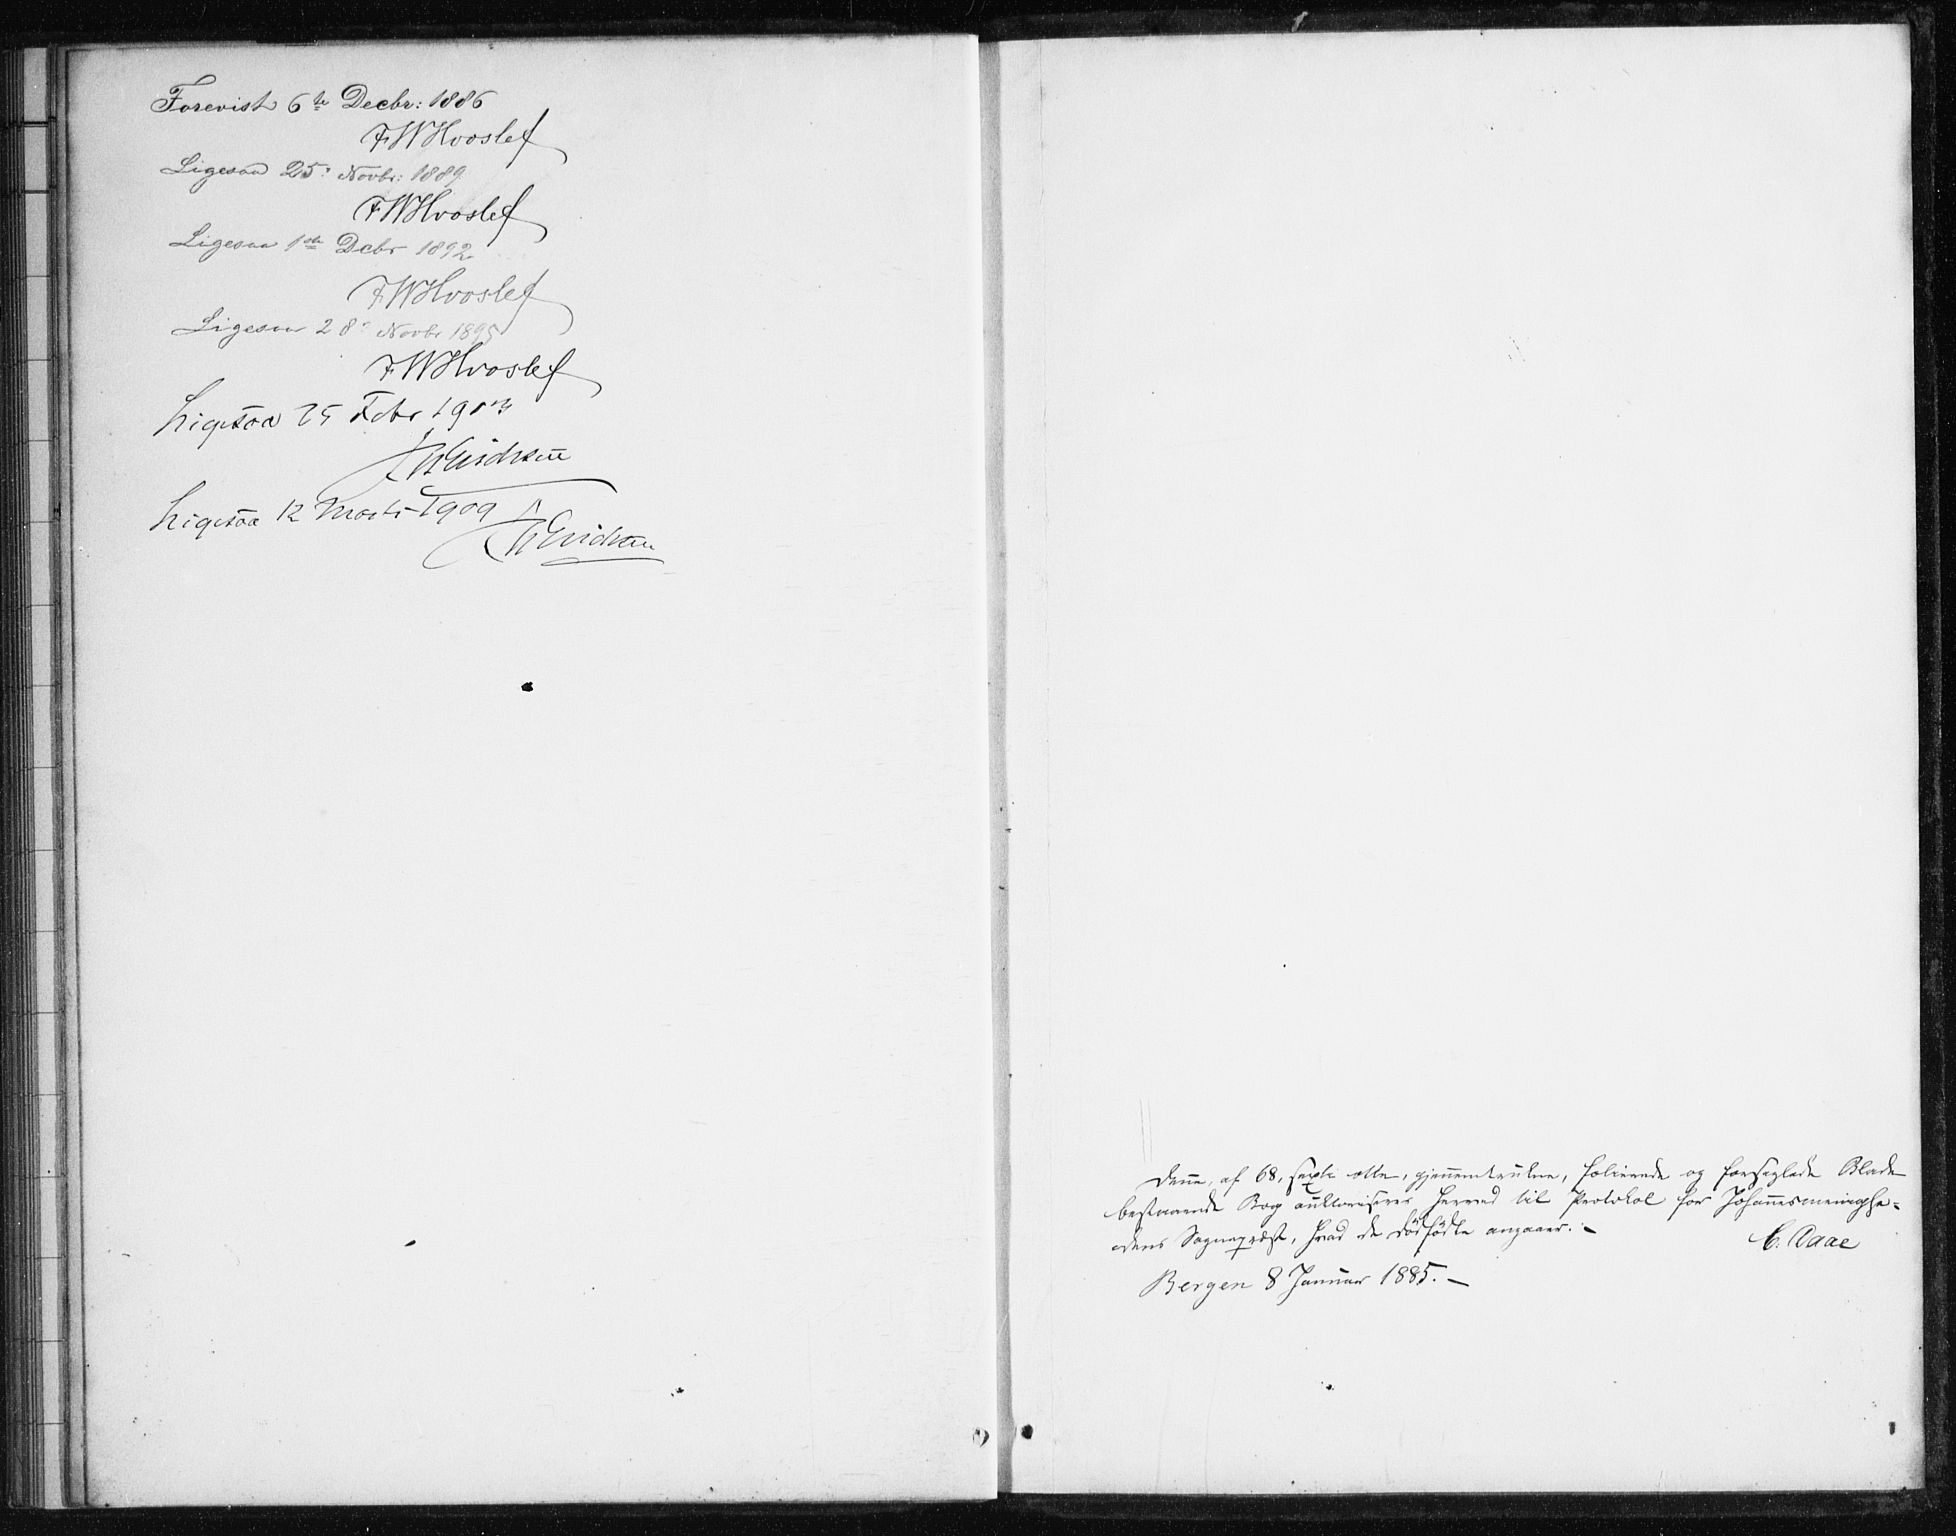 Forevist 6te Decbr: 1886
FWHvoslef
Ligesaa 25: Novbr: 1889
FWHvoslef
Ligesaa 1ste Dcbr 1892
FWHvoslef
Ligesaa 28: Novbr 1895
FWHvoslef
Ligesaa 25 Febr 1903
Erichsen
Ligesaa 12 Marts 1909
Erichsen
Denne, af 68, sexti otte, gjennemtrukne, folierede og forseglede Blade
bestaaende Bog auktoriseres herved til Protokol for Johannesmenighe-
dens Sognepræst, hvad de dødfødte angaaer. –
C. Daae
Bergen 8 Januar 1885. –